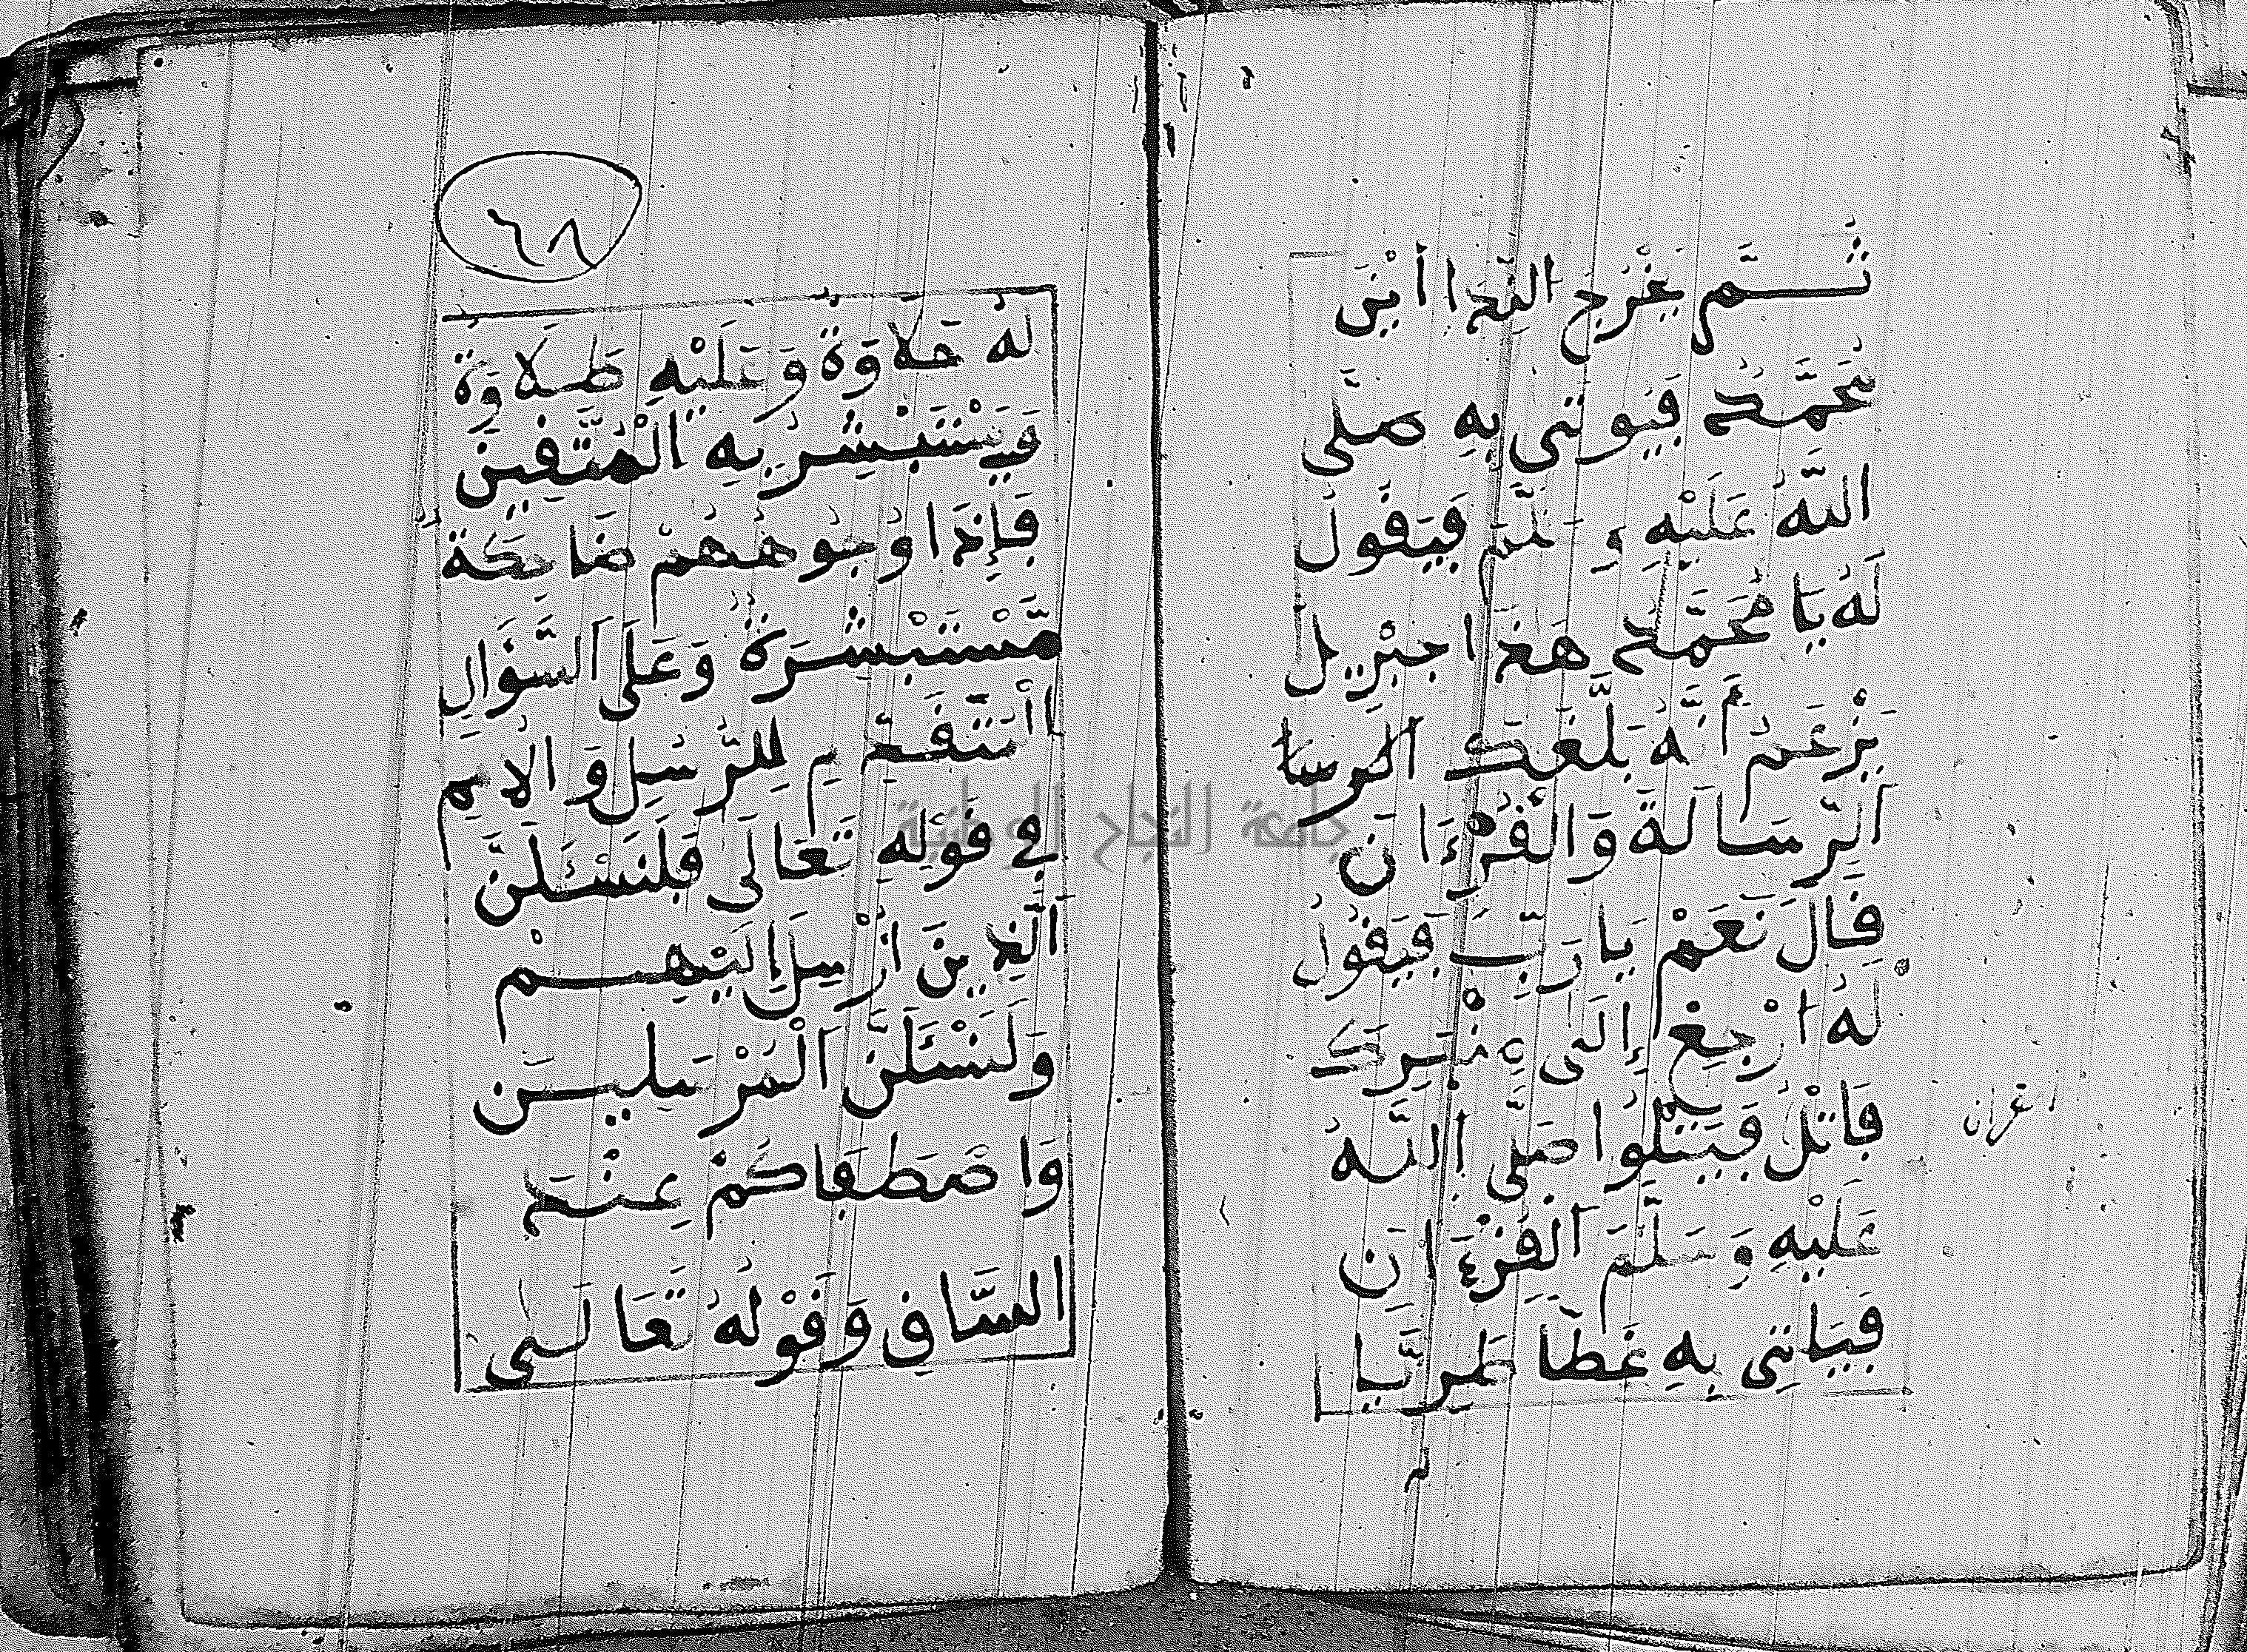 ثُمَّ يَخْرُجُ النِّدَا أَيْنَ
مُحَمَّدُ فَيُوتَى بِهِ صَلَّى
اللَّهُ عَلَيْهِ وَسَلَّمَ فَيَقُولُ
لَهُ يَا مُحَمَّدُ هَذَا جِبْرِيلُ
يَزْعَمُ أَنَّهُ بَلَّغَكَ الرسا
الرِّسَالَةَ وَالْقُرْءَانَ
قَالَ نَعَمْ يَا رَبِّ فَيَقُولُ
لَهُ ارْجِعْ إِلَى مِنْبَرِكَ
فَاتْلُ فَيَتْلُوا صَلَّى اللَّهُ
عَلَيْهِ وَسَلَّمَ الْقُرْءَانَ
فَيَاتِي بِهِ غَطًّا طَرِيًّا
قران
٦٨
لَهُ حَلَاوَةٌ وَعَلَيْهِ طَلَاوَةٌ
وَيَسْتَبْشِرُ بِهِ الْمُتَّقِينَ
فَإِذَا وُجُوهُهُمْ ضَاحِكَةٌ
مُّسْتَبْشِرَةٌ وَعَلَى السُّؤَالِ
الْمُتَقَدِّمِ لِلرُّسُلِ وَالْامَمِ
فِي قَوْلِهِ تَعَالَى فَلَنَسْـَٔلَنَّ
الَّذِينَ أُرْسِلَ إِلَيْهِمْ
وَلَنَسْـَٔلَنَّ الْمُرْسَلِينَ
وَاصْطِفَاكُمْ عِنْدَ
السَّاقِ وَقَوْلُهُ تَعَالَى
جامعة النجاح الوطنية